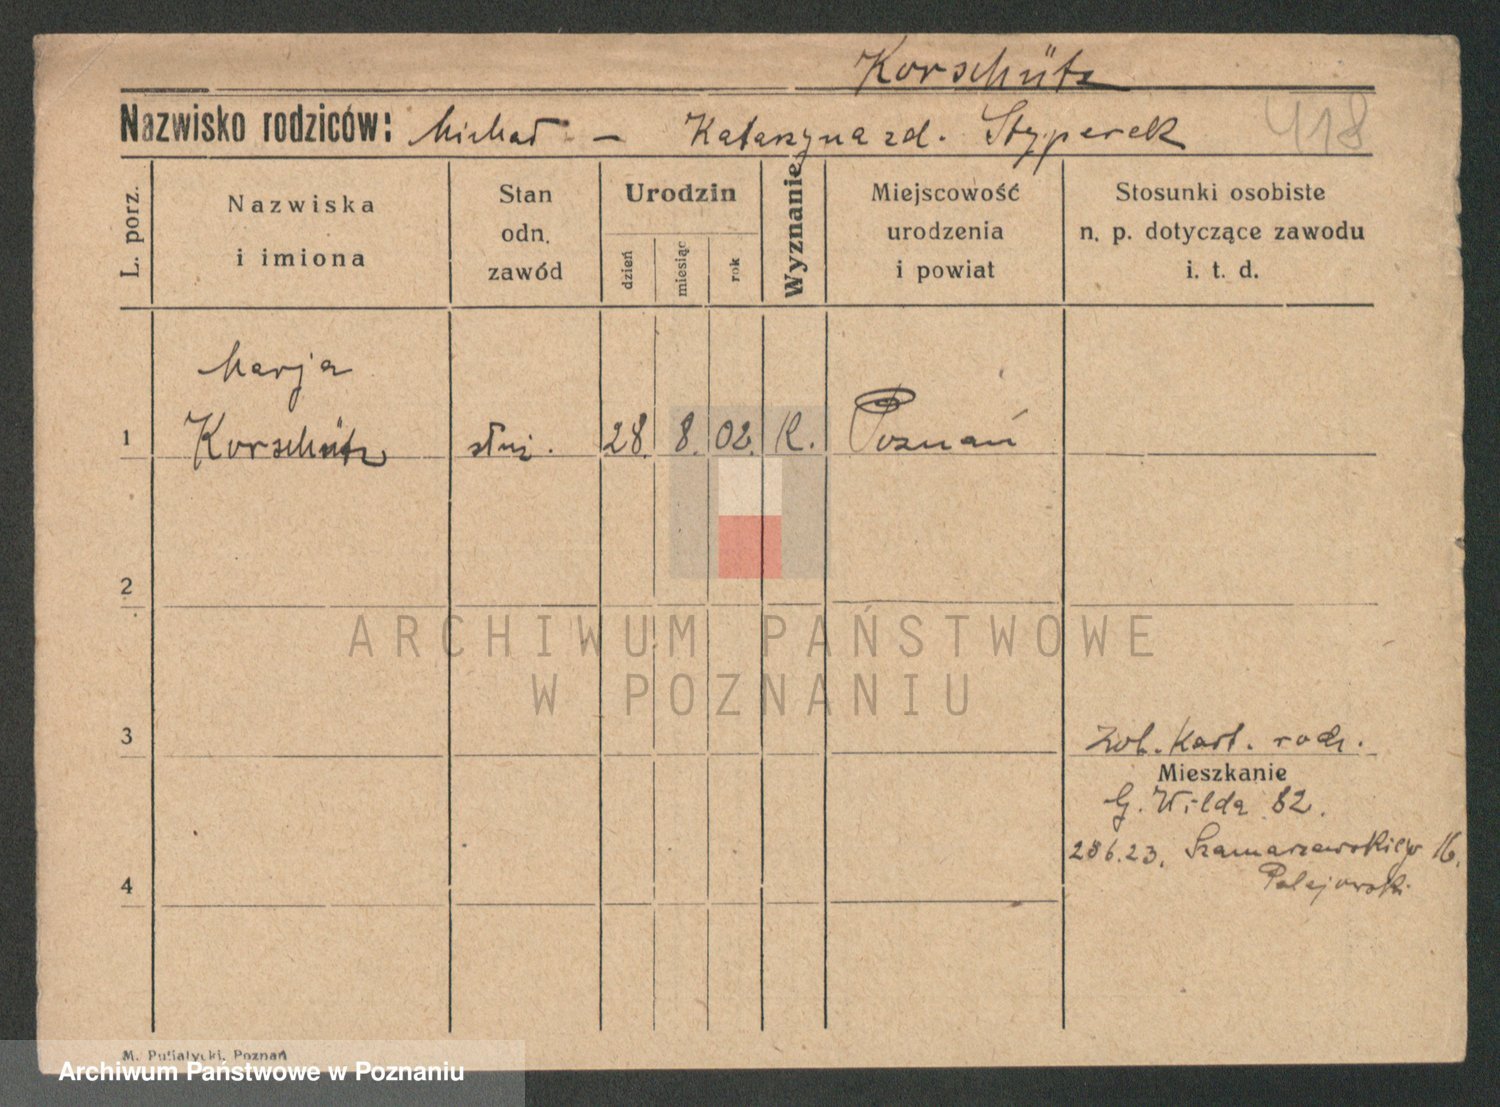 Korschütz
Nazwisko rodziców: Michał – Katarzyna zd. Styperek 418
L. porz.
Nazwiska
i imiona
Stan
odn.
zawód
Urodzin
dzień
miesiąc
rok
Wyznanie
Miejscowość
urodzenia
i powiat
Stosunki osobiste
n. p. dotyczące zawodu
i. t. d.
Marja
1 Korschütz służ. 28. 8. 02. K. Poznań
2
ARCHIWUM PAŃSTWOWE
W POZNANIU
3
Zob. Kart. rodz.
Mieszkanie
G. Wilda 82.
28 6.23. Szamarzewskiego 16.
4
M. Putiatycki, Poznań
Archiwum Państwowe w Poznaniu